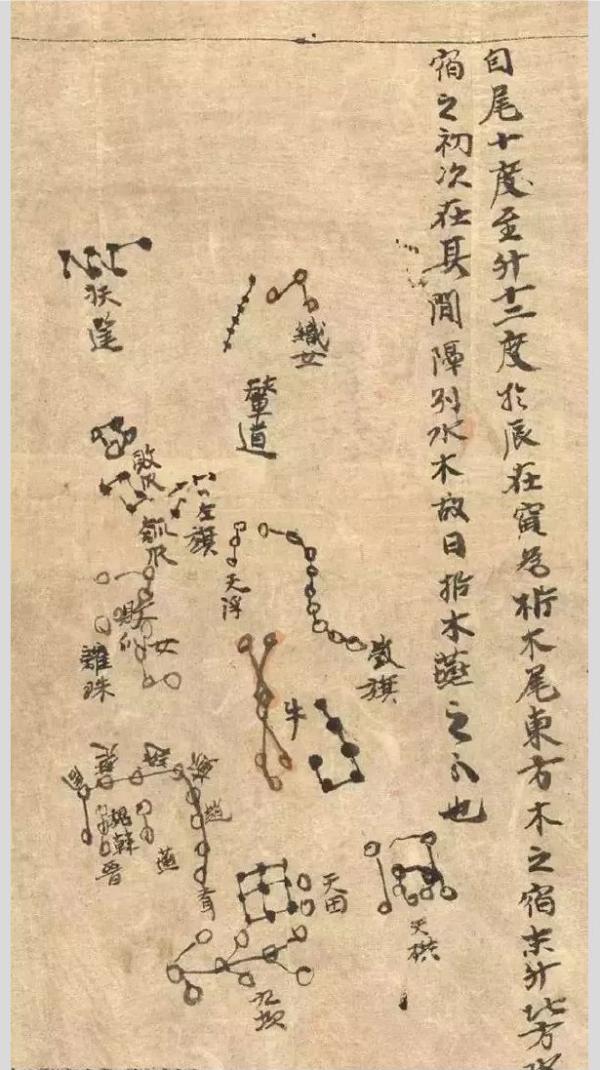 自尾十度至斗十二度於辰在寅為析木尾東方木之宿末斗北方水
宿之初次在其間隔別水木故曰析木燕之分也
織女
輦道
扶筐
敗瓜
瓠瓜
左旗
天浮
旗
女
離珠
牛
越
韓
晉
燕
天田
九坎